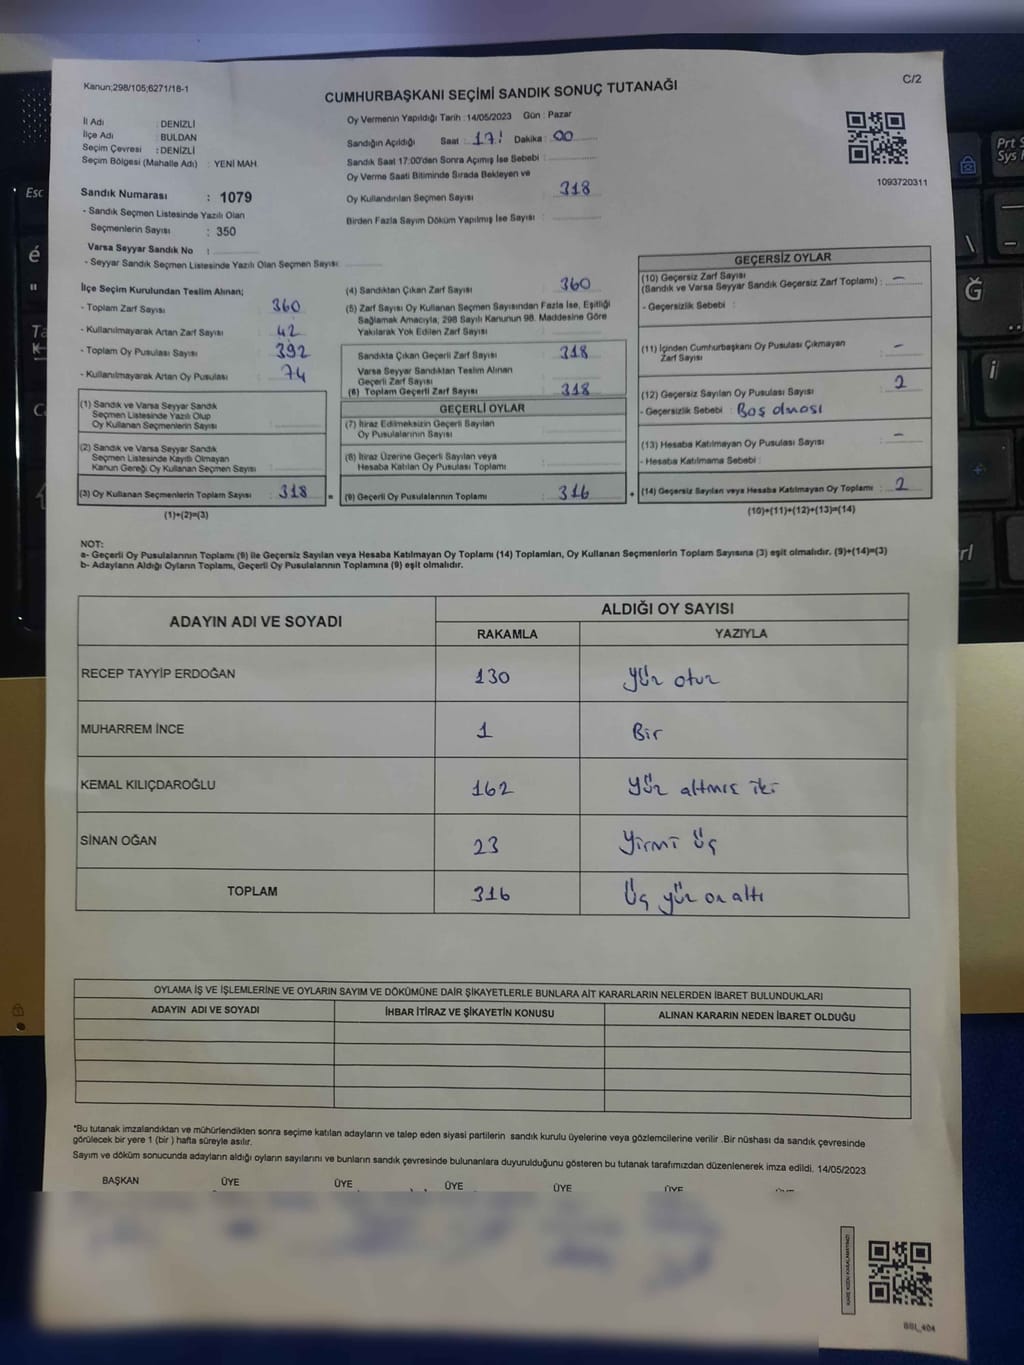 Kanun;298/105;6271/18-1
C/2
CUMHURBAŞKANI SEÇİMİ SANDIK SONUÇ TUTANAĞI
İl Adı : DENİZLİ
İlçe Adı : BULDAN
Seçim Çevresi : DENİZLİ
Seçim Bölgesi (Mahalle Adı) : YENİ MAH.
Oy Vermenin Yapıldığı Tarih :14/05/2023 Gün : Pazar
Sandığın Açıldığı Saat : 17: Dakika : 00
Sandık Saat 17:00'den Sonra Açımış İse Sebebi :
Oy Verme Saati Bitiminde Sırada Bekleyen ve
Oy Kullandırılan Seçmen Sayısı : 318
Birden Fazla Sayım Döküm Yapılmış İse Sayısı :
1093720311
Sandık Numarası : 1079
- Sandık Seçmen Listesinde Yazılı Olan
Seçmenlerin Sayısı : 350
Varsa Seyyar Sandık No :
- Seyyar Sandık Seçmen Listesinde Yazılı Olan Seçmen Sayısı:
İlçe Seçim Kurulundan Teslim Alınan;
- Toplam Zarf Sayısı : 360
- Kullanılmayarak Artan Zarf Sayısı : 42
- Toplam Oy Pusulası Sayısı : 392
- Kullanılmayarak Artan Oy Pusulası : 74
(1) Sandık ve Varsa Seyyar Sandık
Seçmen Listesinde Yazılı Olup
Oy Kullanan Seçmenlerin Sayısı :
(2) Sandık ve Varsa Seyyar Sandık
Seçmen Listesinde Kayıtlı Olmayan
Kanun Gereği Oy Kullanan Seçmen Sayısı :
(3) Oy Kullanan Seçmenlerin Toplam Sayısı : 318
(1)+(2)=(3)
(4) Sandıktan Çıkan Zarf Sayısı : 360
(5) Zarf Sayısı Oy Kullanan Seçmen Sayısından Fazla İse, Eşitliği
Sağlamak Amacıyla, 298 Sayılı Kanunun 98. Maddesine Göre
Yakılarak Yok Edilen Zarf Sayısı :
Sandıkta Çıkan Geçerli Zarf Sayısı : 318
Varsa Seyyar Sandıktan Teslim Alınan
Geçerli Zarf Sayısı :
(6) Toplam Geçerli Zarf Sayısı : 318
GEÇERLİ OYLAR
(7) İtiraz Edilmeksizin Geçerli Sayılan
Oy Pusulalarının Sayısı :
(8) İtiraz Üzerine Geçerli Sayılan veya
Hesaba Katılan Oy Pusulası Toplamı :
= (9) Geçerli Oy Pusulalarının Toplamı : 316
GEÇERSİZ OYLAR
(10) Geçersiz Zarf Sayısı
(Sandık ve Varsa Seyyar Sandık Geçersiz Zarf Toplamı) : –
- Geçersizlik Sebebi :
(11) İçinden Cumhurbaşkanı Oy Pusulası Çıkmayan
Zarf Sayısı : –
(12) Geçersiz Sayılan Oy Pusulası Sayısı : 2
- Geçersizlik Sebebi : Boş olması
(13) Hesaba Katılmayan Oy Pusulası Sayısı : –
- Hesaba Katılmama Sebebi :
+ (14) Geçersiz Sayılan veya Hesaba Katılmayan Oy Toplamı : 2
(10)+(11)+(12)+(13)=(14)
NOT:
a- Geçerli Oy Pusulalarının Toplamı (9) ile Geçersiz Sayılan veya Hesaba Katılmayan Oy Toplamı (14) Toplamları, Oy Kullanan Seçmenlerin Toplam Sayısına (3) eşit olmalıdır. (9)+(14)=(3)
b- Adayların Aldığı Oyların Toplamı, Geçerli Oy Pusulalarının Toplamına (9) eşit olmalıdır.
ADAYIN ADI VE SOYADI ALDIĞI OY SAYISI
RAKAMLA YAZIYLA
RECEP TAYYİP ERDOĞAN 130 yüz otuz
MUHARREM İNCE 1 Bir
KEMAL KILIÇDAROĞLU 162 yüz altmış iki
SİNAN OĞAN 23 Yirmi üç
TOPLAM 316 Üç yüz on altı
OYLAMA İŞ VE İŞLEMLERİNE VE OYLARIN SAYIM VE DÖKÜMÜNE DAİR ŞİKAYETLERLE BUNLARA AİT KARARLARIN NELERDEN İBARET BULUNDUKLARI
ADAYIN ADI VE SOYADI İHBAR İTİRAZ VE ŞİKAYETİN KONUSU ALINAN KARARIN NEDEN İBARET OLDUĞU
*Bu tutanak imzalandıktan ve mühürlendikten sonra seçime katılan adayların ve talep eden siyasi partilerin sandık kurulu üyelerine veya gözlemcilerine verilir .Bir nüshası da sandık çevresinde
görülecek bir yere 1 (bir ) hafta süreyle asılır.
Sayım ve döküm sonucunda adayların aldığı oyların sayılarını ve bunların sandık çevresinde bulunanlara duyurulduğunu gösteren bu tutanak tarafımızdan düzenlenerek imza edildi. 14/05/2023
BAŞKAN ÜYE ÜYE ÜYE ÜYE ÜYE
BSI_404
Esc
Prt S
Sys
é
"
Ğ
i